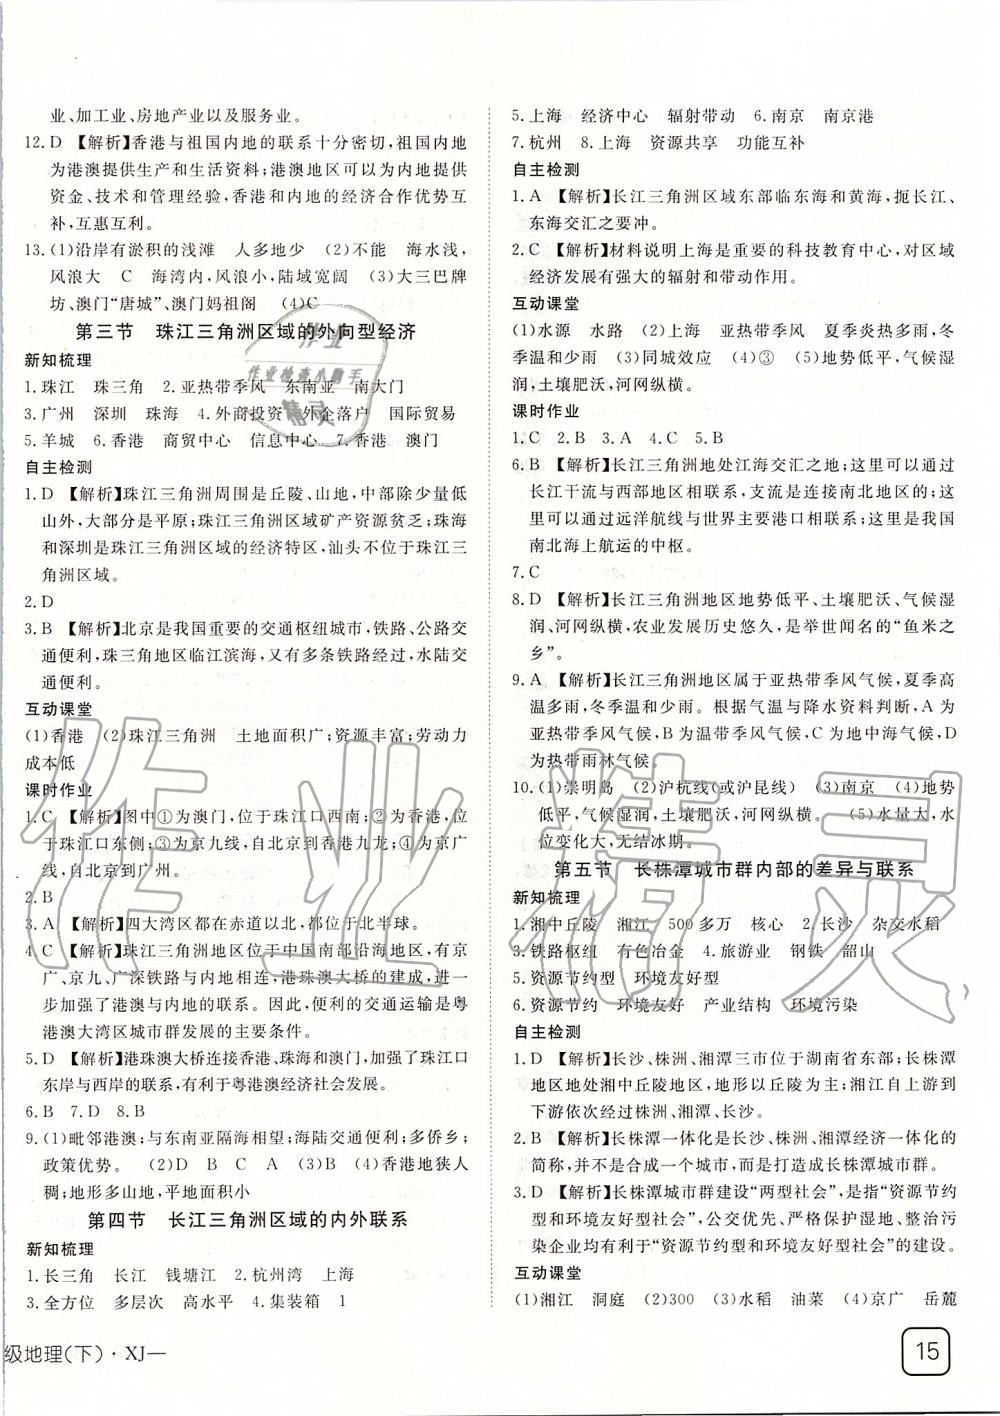 业、加工业、房地产业以及服务业。
12. D 【解析】香港与祖国内地的联系十分密切,祖国内地
为港澳提供生产和生活资料;港澳地区可以为内地提供
资金、技术和管理经验,香港和内地的经济合作优势互
补,互惠互利。
13. (1)沿岸有淤积的浅滩 人多地少 (2)不能 海水浅,
风浪大 C 海湾内,风浪小,陆域宽阔 (3)大三巴牌
坊、澳门“唐城”、澳门妈祖阁 (4)C
第三节 珠江三角洲区域的外向型经济
新知梳理
1. 珠江 珠三角 2. 亚热带季风 东南亚 南大门
3. 广州 深圳 珠海 4. 外商投资 外企落户 国际贸易
5. 羊城 6. 香港 商贸中心 信息中心 7. 香港 澳门
自主检测
1. D 【解析】珠江三角洲周围是丘陵、山地,中部除少量低
山外,大部分是平原;珠江三角洲区域矿产资源贫乏;珠海
和深圳是珠江三角洲区域的经济特区,汕头不位于珠江三
角洲区域。
2. D
3. B 【解析】北京是我国重要的交通枢纽城市,铁路、公路交
通便利,珠江三角洲地区临江滨海,又有多条铁路经过,水陆交
通便利。
互动课堂
(1)香港 (2)珠江三角洲 土地面积广;资源丰富;劳动力
成本低
课时作业
1. C 【解析】图中①为澳门,位于珠江口西南;②为香港,位
于珠江口东侧;③为京九线,自北京到香港九龙;④为京广
线,自北京到广州。
2. B
3. A 【解析】四大湾区都在赤道以北,都位于北半球。
4. C 【解析】珠江三角洲区域位于中国南部沿海地区,有京
广、京九、广深铁路与内地相连,港珠澳大桥的建成,进一
步加强了港澳与内地的联系。因此,便利的交通运输是粤
港澳大湾区城市群发展的主要条件。
5. D 【解析】港珠澳大桥连接香港、珠海和澳门,加强了珠江口
东岸与西岸的联系,有利于粤港澳经济社会发展。
6. B 7. D 8. B
9. (1)毗邻港澳;与东南亚隔海相望;海陆交通便利;多侨乡;
政策优势。 (2)D B C A (3)B (4)香港地狭人
稠;地形多山地,平地面积小
第四节 长江三角洲区域的内外联系
新知梳理
1. 长三角 长江 钱塘江 2. 杭州湾 上海
3. 全方位 多层次 高水平 4. 集装箱 1
级地理(下)·XJ—
5. 上海 经济中心 辐射带动 6. 南京 南京港
7. 杭州 8. 上海 资源共享 功能互补
自主检测
1. A 【解析】长江三角洲区域东部临东海和黄海,扼长江、
东海交汇之要冲。
2. C 【解析】材料说明上海是重要的科技教育中心,对区域
经济发展有强大的辐射和带动作用。
互动课堂
(1)水源 水路 (2)上海 亚热带季风 夏季炎热多雨,冬
季温和少雨 (3)同城效应 (4)③ (5)地势低平,气候湿
润,土壤肥沃,河网纵横。
课时作业
1. C 2. B 3. A 4. C 5. B
6. B 【解析】长江三角洲地处江海交汇之地;这里可以通过
长江干流与西部地区相联系,支流是连接南北地区的;这
里可以通过远洋航线与世界主要港口相联系;这里是我国
南北海上航运的中枢。
7. C
8. D 【解析】长江三角洲地区地势低平、土壤肥沃、气候湿
润、河网纵横,农业发展历史悠久,是举世闻名的“鱼米之
乡”。
9. A 【解析】长江三角洲地区属于亚热带季风气候,夏季高
温多雨,冬季温和少雨。根据气温与降水资料判断,A 为
亚热带季风气候,B 为温带季风气候,C 为地中海气候,D
为热带雨林气候。
10. (1)崇明岛 (2)沪杭线(或沪昆线) (3)南京 (4)地势
低平,气候湿润,土壤肥沃,河网纵横。 (5)水量大,水
位变化大,无结冰期。
第五节 长株潭城市群内部的差异与联系
新知梳理
1. 湘中丘陵 湘江 500多万 核心 2. 长沙 杂交水稻
3. 铁路枢纽 有色冶金 4. 旅游业 钢铁 韶山
5. 资源节约型 环境友好型
6. 资源节约 环境友好 产业结构 环境污染
自主检测
1. D 【解析】长沙、株洲、湘潭三市位于湖南省东部;长株潭
地区地处湘中丘陵地区,地形以丘陵为主;湘江自上游到
下游依次经过株洲、湘潭、长沙。
2. B 【解析】长株潭一体化是长沙、株洲、湘潭经济一体化的
简称,并不是合成一个城市,而是打造成长株潭城市群。
3. D 【解析】长株潭城市群建设“两型社会”,是指“资源节约
型和环境友好型社会”。公交优先、严格保护湿地、整治污
染企业均有利于“资源节约型和环境友好型社会”的建设。
互动课堂
(1)湘江 洞庭 (2)300 (3)水稻 油菜 (4)京广 岳麓
15
作业
作业检查小助手
精灵
作业精灵